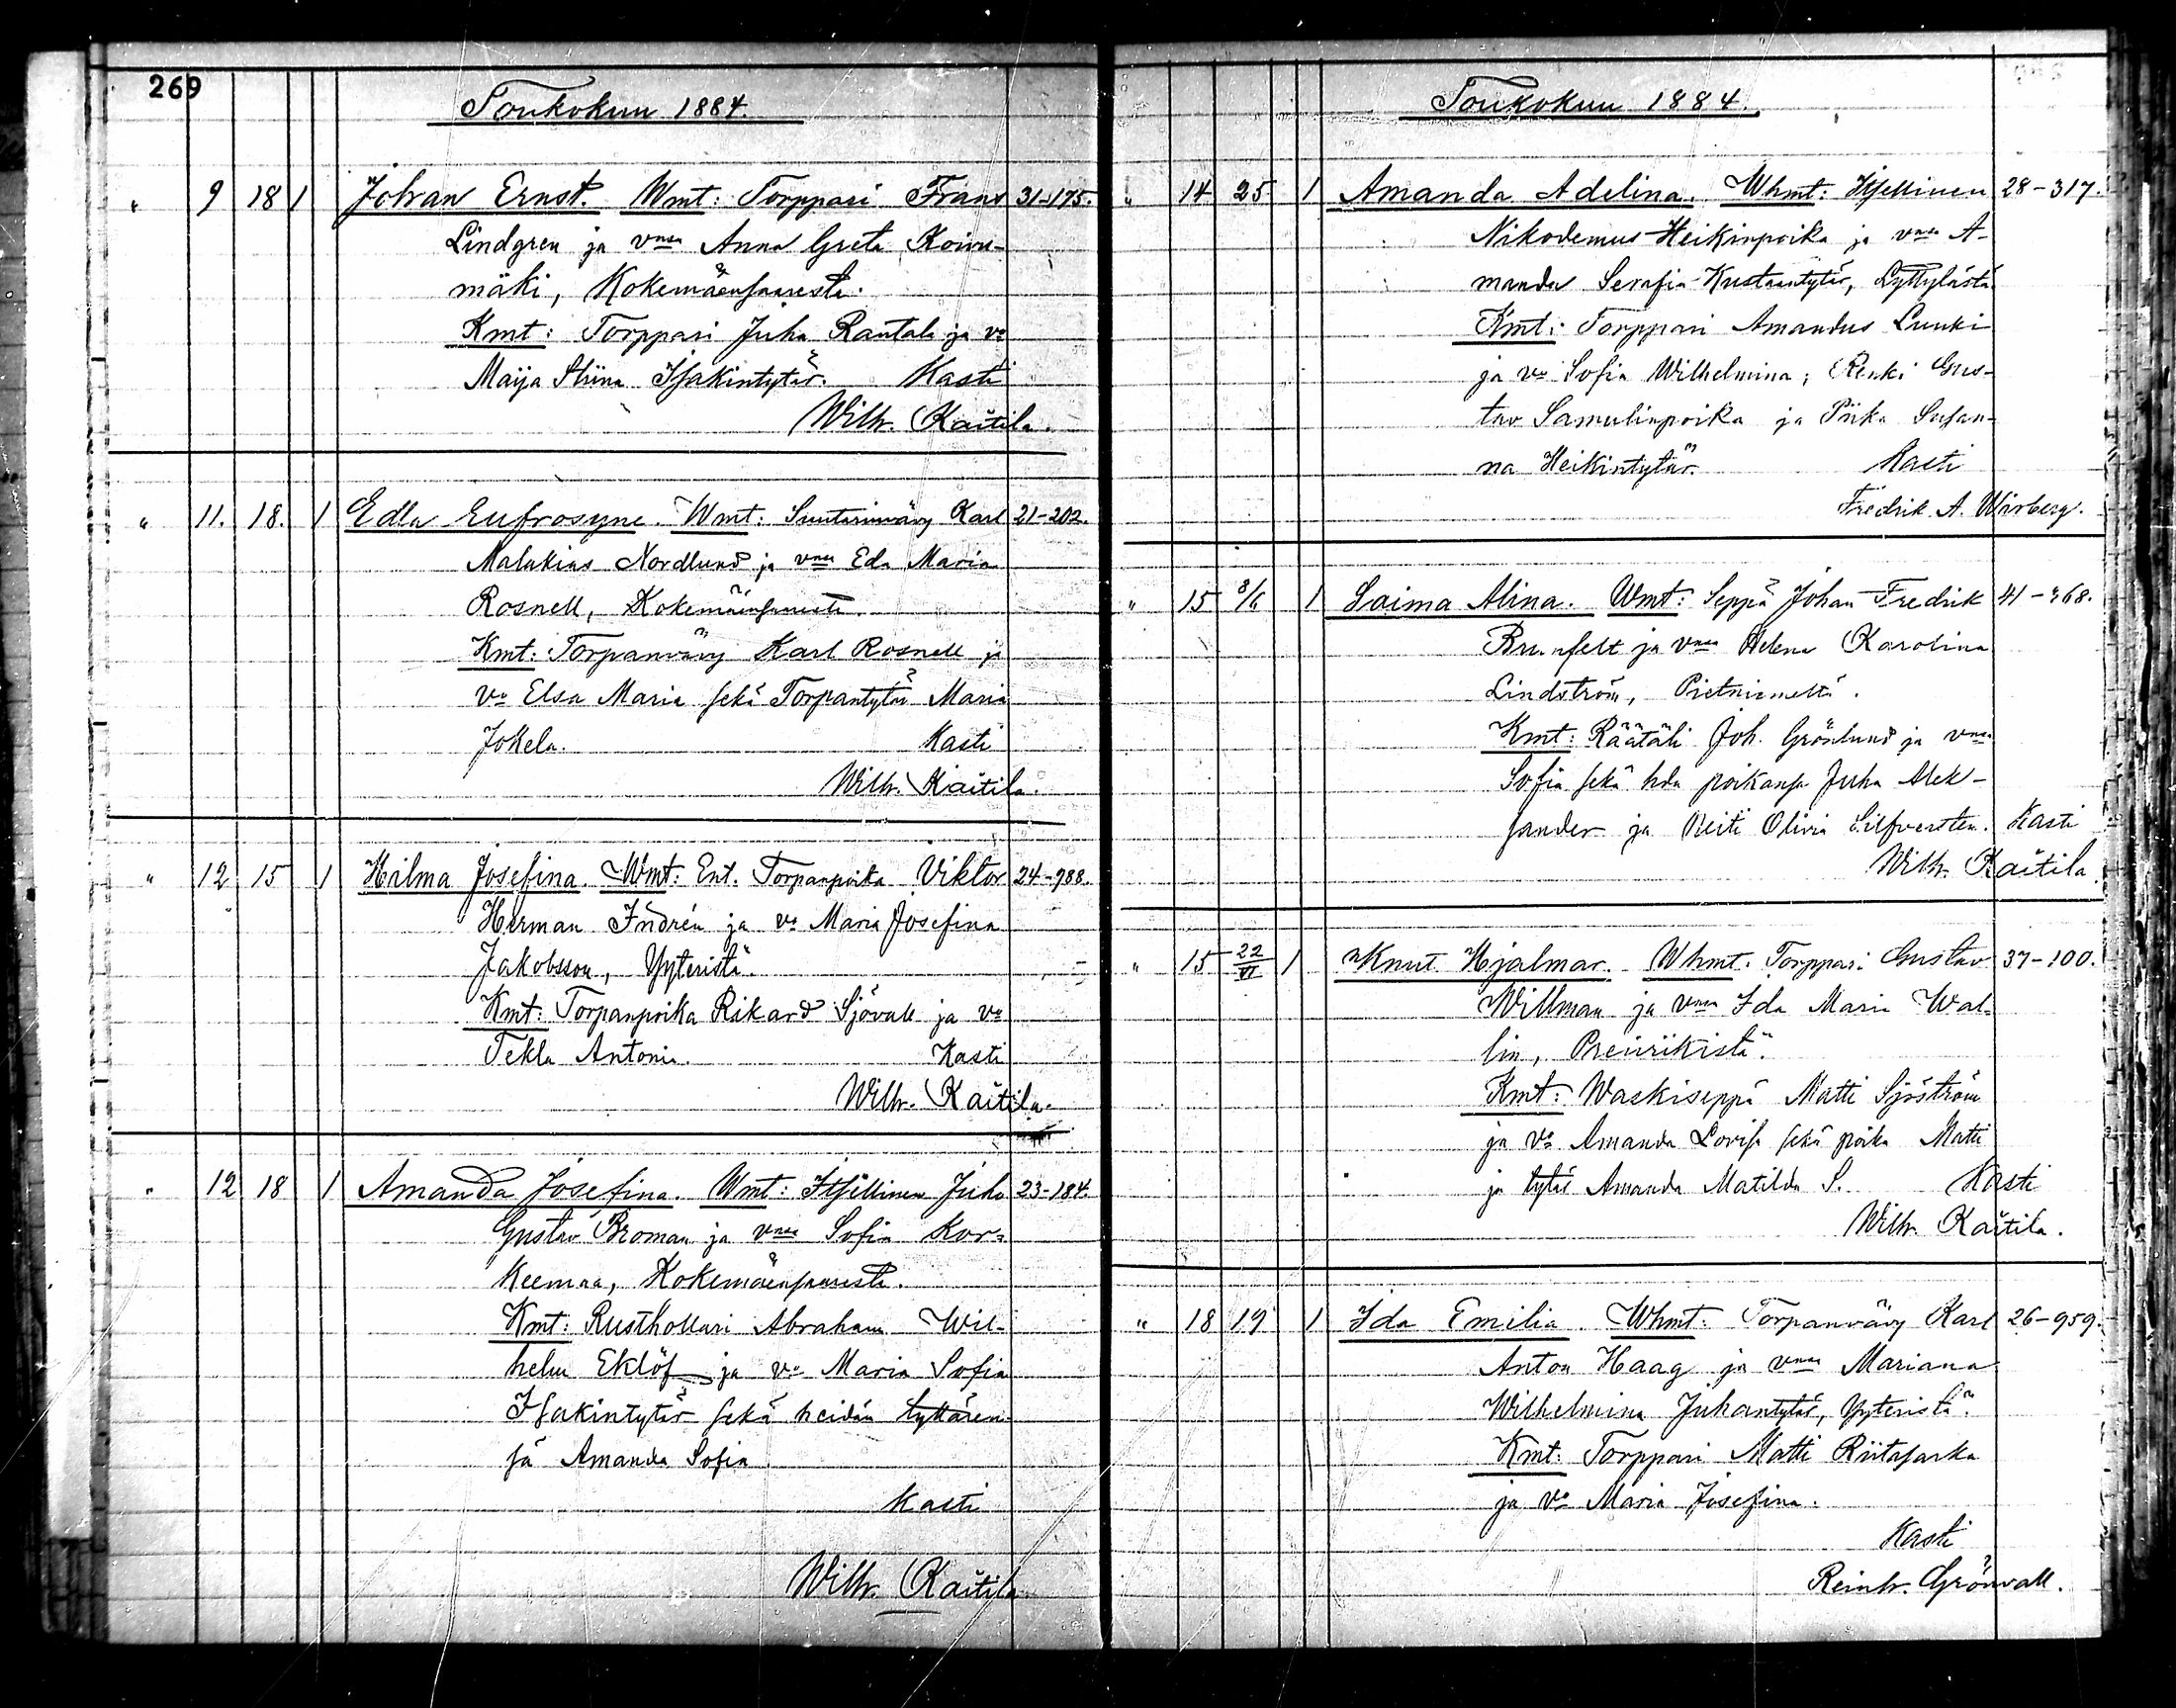 269
Toukokuu 1884.
" 9 18 1 Johan Ernst. Wmt: Torppari Frans 31-175.
Lindgren ja vmsa Anna Greta Koivu-
mäki, Kokemäensaaresta.
Kmt: Torppari Juha Rantala ja vo
Maija Stiina Isakintytär. Kasti
Wilh. Kaitila.
" 11. 18. 1 Edla Eufrosyne. Wmt: Suutarinvävy Karl 21-202.
Malakias Nordlund ja vmsa Eda Maria
Rosnell, Kokemäensaaresta.
Kmt: Torpanvävy Karl Rosnell ja
vo Elsa Maria sekä Torpantytär Maria
Jokela. Kasti
Wilh. Kaitila.
" 12 15 1 Hilma Josefina. Wmt: Ent. Torpanpoika Viktor 24-988.
Herman Indrén ja vo Maria Josefina
Jakobsson, Yyteristä.
Kmt: Torpanpoika Rikard Sjövall ja vo
Tekla Antonia. Kasti
Wilh. Kaitila.
" 12 18 1 Amanda Josefina. Wmt: Itsellinen Juho 23-184.
Gustav Broman ja vmsa Sofia Kor-
keemaa, Kokemäensaaresta.
Kmt: Rusthollari Abraham Wil-
helm Eklöf ja vo Maria Sofia
Isakintytär sekä heidän tyttären-
sä Amanda Sofia.
Kasti
Wilh. Kaitila
Toukokuu 1884.
" 14 25 1 Amanda Adelina. Whmt: Itsellinen 28-317.
Nikodemus Heikinpoika ja vmsa A-
manda Serafia Kustaantytär, Lyttylästä
Kmt: Torppari Amandus Luuki
ja vo Sofia Wilhelmina; Renki Gus-
tav Samulinpoika ja Piika Susan-
na Heikintytär. Kasti
Fredrik A. Wirberg.
" 15 8/6 1 Saima Alina. Wmt: Seppä Johan Fredrik 41-368.
Brunfelt ja vmsa Helena Karolina
Lindström, Pietniemeltä.
Kmt: Räätäli Joh. Grönlund ja vmsa
Sofia sekä hda poikansa Juha Alek-
sander ja Neiti Olivia Silfversten. Kasti
Wilh. Kaitila.
" 15 22/VI 1 Knut Hjalmar. Whmt. Torppari Gustav 37-100.
Willman ja vmsa Ida Maria Wal-
lin, Preiviikistä.
Kmt: Waskiseppä Matti Sjöström
ja vo Amanda Lovisa sekä poika Matti
ja tytär Amanda Matilda S. Kasti
Wilh. Kaitila.
" 18 19 1 Ida Emilia. Whmt: Torpanvävy Karl 26-959.
Anton Haag ja vmsa Mariana
Wilhelmina Juhantytär, Yyteristä.
Kmt: Torppari Matti Riitasarka
ja vo Maria Josefina.
Kasti
Reinh. Grönvall.